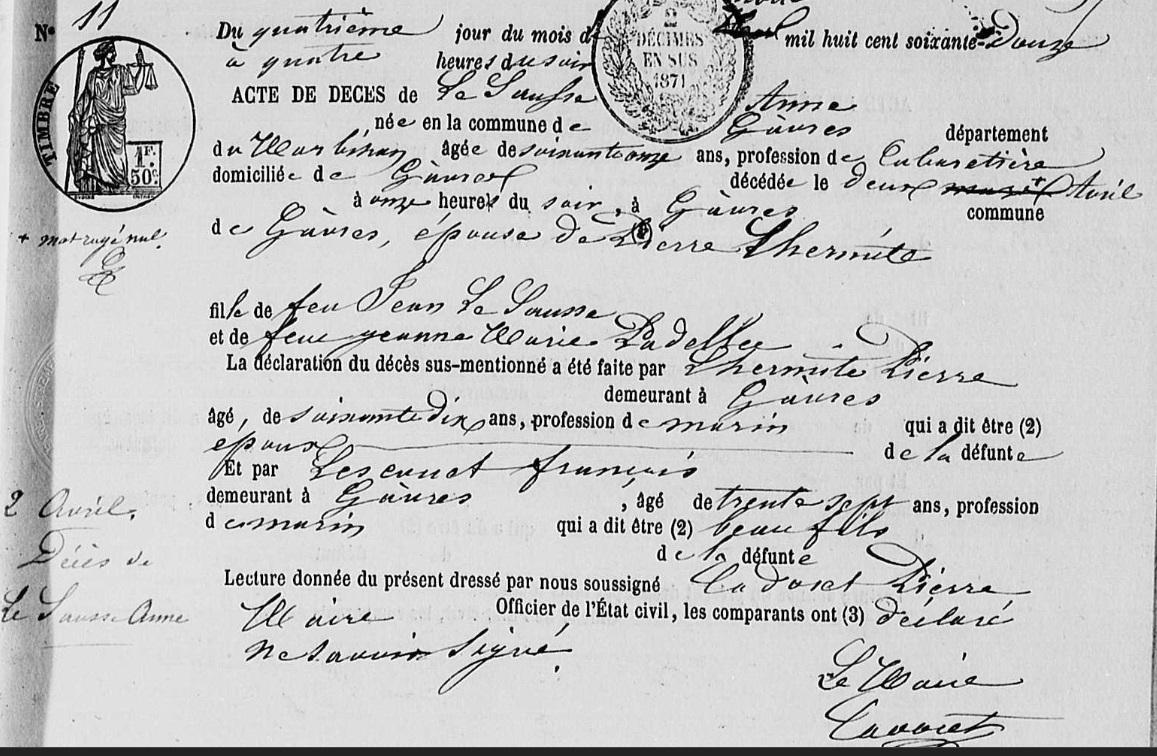 N° 11
Du quatrième jour du mois d avril mil huit cent soixante-Douze
à quatre heures du soir
ACTE DE DECES de Le Sausse Anne
, née en la commune de Gâvres département
du Morbihan âgée de soixante onze ans, profession de Cabaretière
domiciliée de Gâvres décédée le deux Avril
à onze heures du soir, à Gâvres commune
de Gâvres, épouse de Pierre Lhermite
fille de feu Jean Le Sausse
et de feue jeanne Marie Padellec
La déclaration du décès sus-mentionné a été faite par Lhermite Pierre
demeurant à Gâvres
âgé, de soixante Dix ans, profession de marin qui a dit être (2)
epoux de la défunte
Et par Lescouet françois
demeurant à Gâvres , âgé de trente sept ans, profession
de marin qui a dit être (2) beau fils
de la défunte
Lecture donnée du présent dressé par nous soussigné Cadoret Pierre
Maire Officier de l'État civil, les comparants ont (3) déclaré
ne savoir signé.
Le Maire
Cadoret
TIMBRE
1 F.
50 c.
2
DÉCIMES
EN SUS
1871
+ mot rayé nul.
2 Avril.
Décès de
Le Sausse Anne